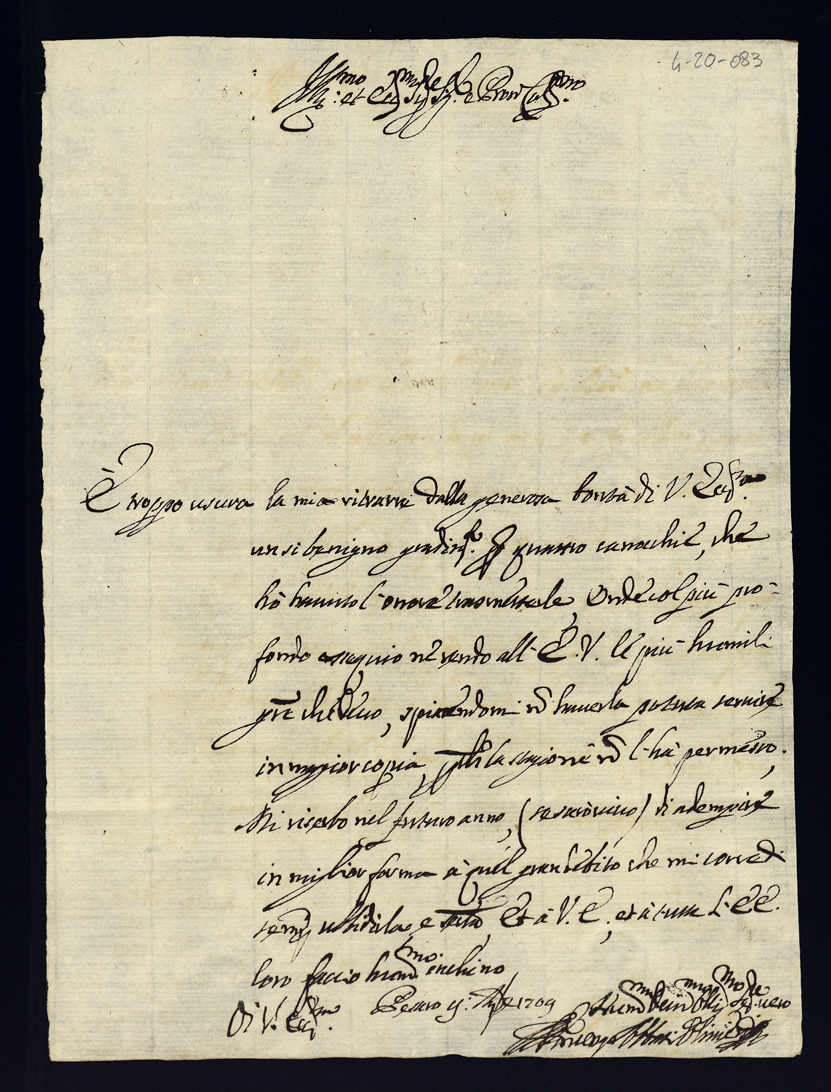 4-20-083
Ill.mo et Ecc.mo Sig.re Sig.re e Pron Col.mo
È troppo usura la mia ritrarre dalla generosa bontà di V. Ecc.za
un si benigno gradim.to p quattro cannochie, che
hò hauuto l'onore trasmetterle, Onde col più pro=
fondo ossequio ne rendo all' E.V. le più humili
gre che deuo, spiacendomi nō hauerla potuta seruire
in maggior copia, la stagione nō l'hà permesso.
Mi riserbo nel futuro anno, (se sarò uiuo) di adempire
in miglior forma à quel gran debito che mi corre di
semp ubbidirla, e Et à V.E., et à tutte L'EE.
loro faccio hum.mo inchino
Di V. Ecc.za Pesaro 1709
Hum.mo Deu.mo Obl.mo Se.re uero